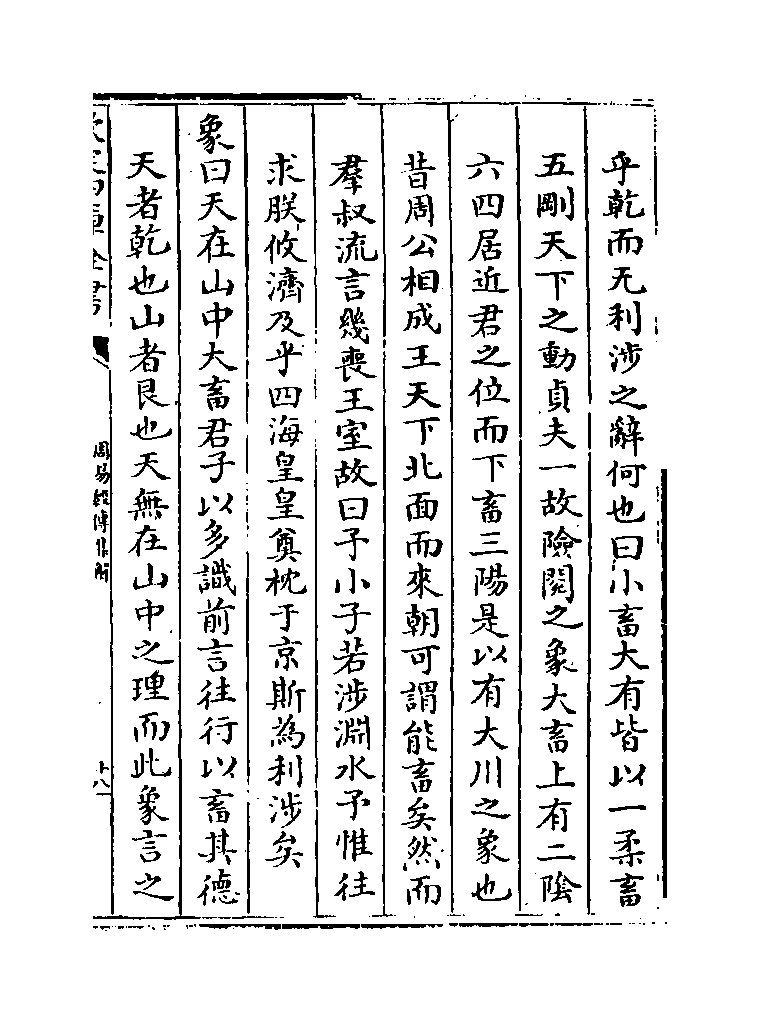 乎乾而无利涉之辭何也曰小畜大有皆以一柔畜
五剛天下之動貞夫一故險閡之象大畜上有二陰
六四居近君之位而下畜三陽是以有大川之象也
昔周公相成王天下北面而來朝可謂能畜矣然而
羣叔流言幾喪王室故曰予小子若涉淵水予惟往
求朕攸濟及乎四海皇皇奠枕于京斯為利涉矣
象曰天在山中大畜君子以多識前言往行以畜其德
天者乾也山者艮也天無在山中之理而此象言之
欽定四庫全書
周易經傳集解
十八